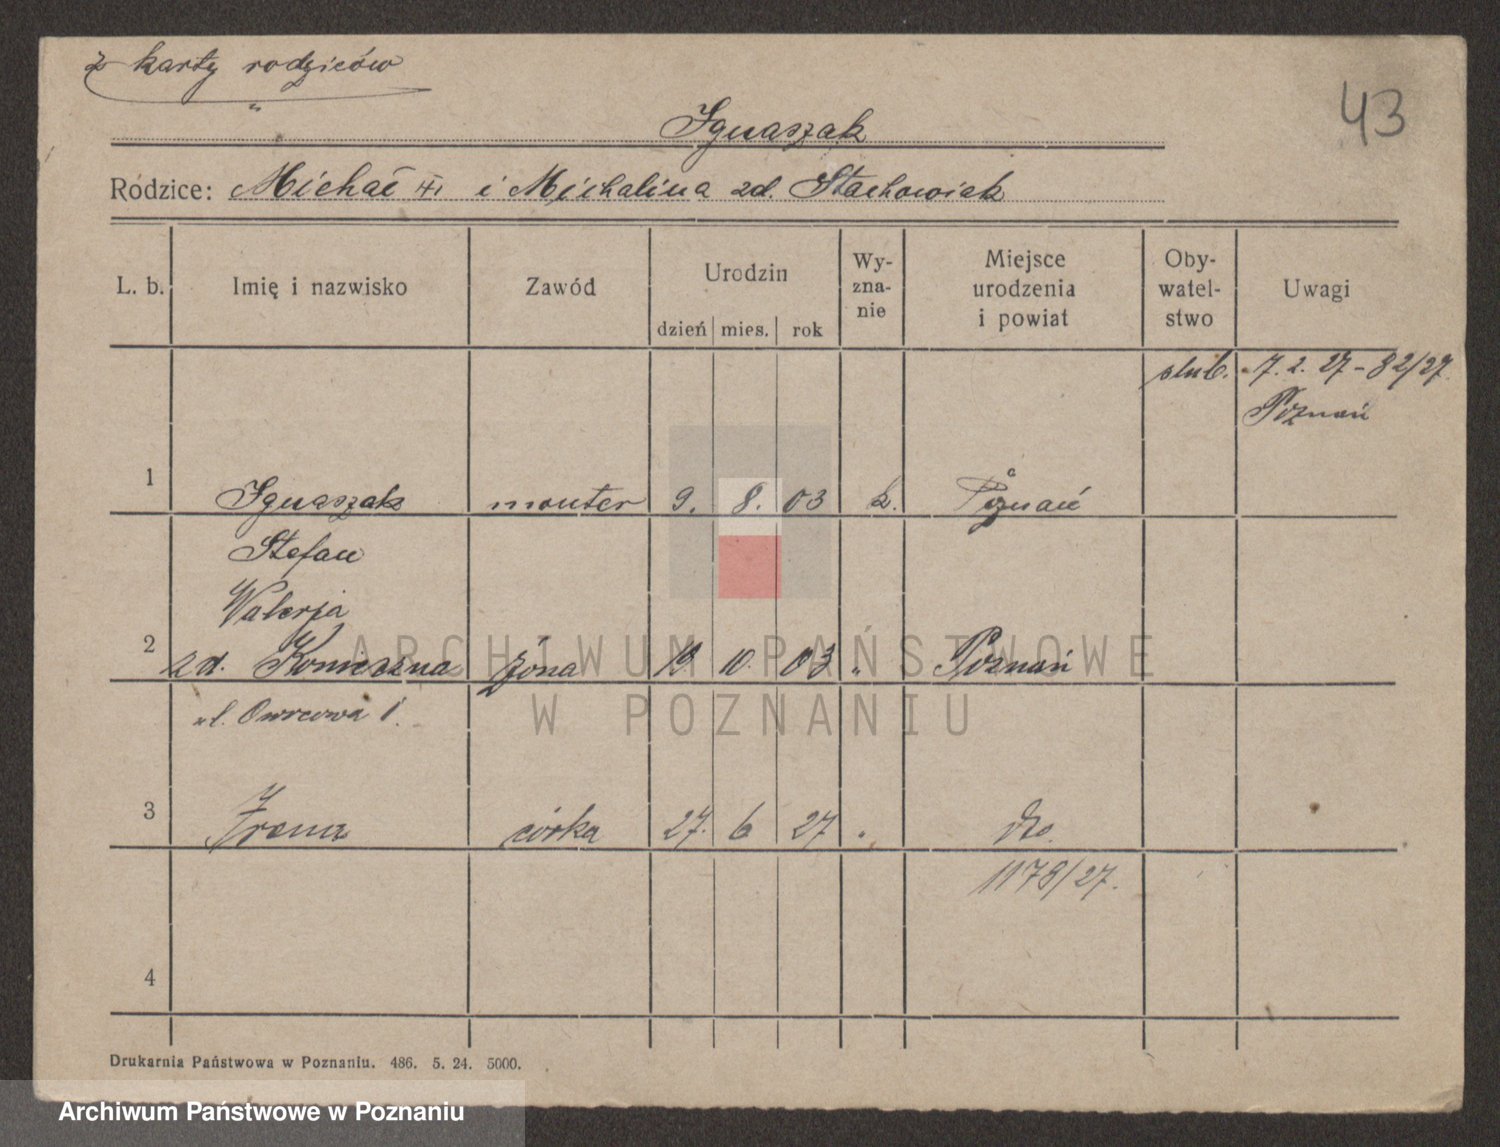 z karty rodziców
"
43
Ignaszak
Rodzice: Michał i Michalina zd. Stachowiak
L. b. Imię i nazwisko Zawód Urodzin dzień mies. rok Wy-zna-nie Miejsce urodzenia i powiat Oby-watel-stwo Uwagi
ślub. 7. 2. 27 - 82/27
Poznań
1 Ignaszak monter 9. 8. 03 k. Poznań
Stefan
Walerja
2 zd. Konieczna żona 19 10. 03 " Poznań
ul. 1.
3 Irena córka 27. 6 27 " dto.
1178/27.
4
Drukarnia Państwowa w Poznaniu. 486. 5. 24. 5000.
ARCHIWUM PAŃSTWOWE
W POZNANIU
Archiwum Państwowe w Poznaniu